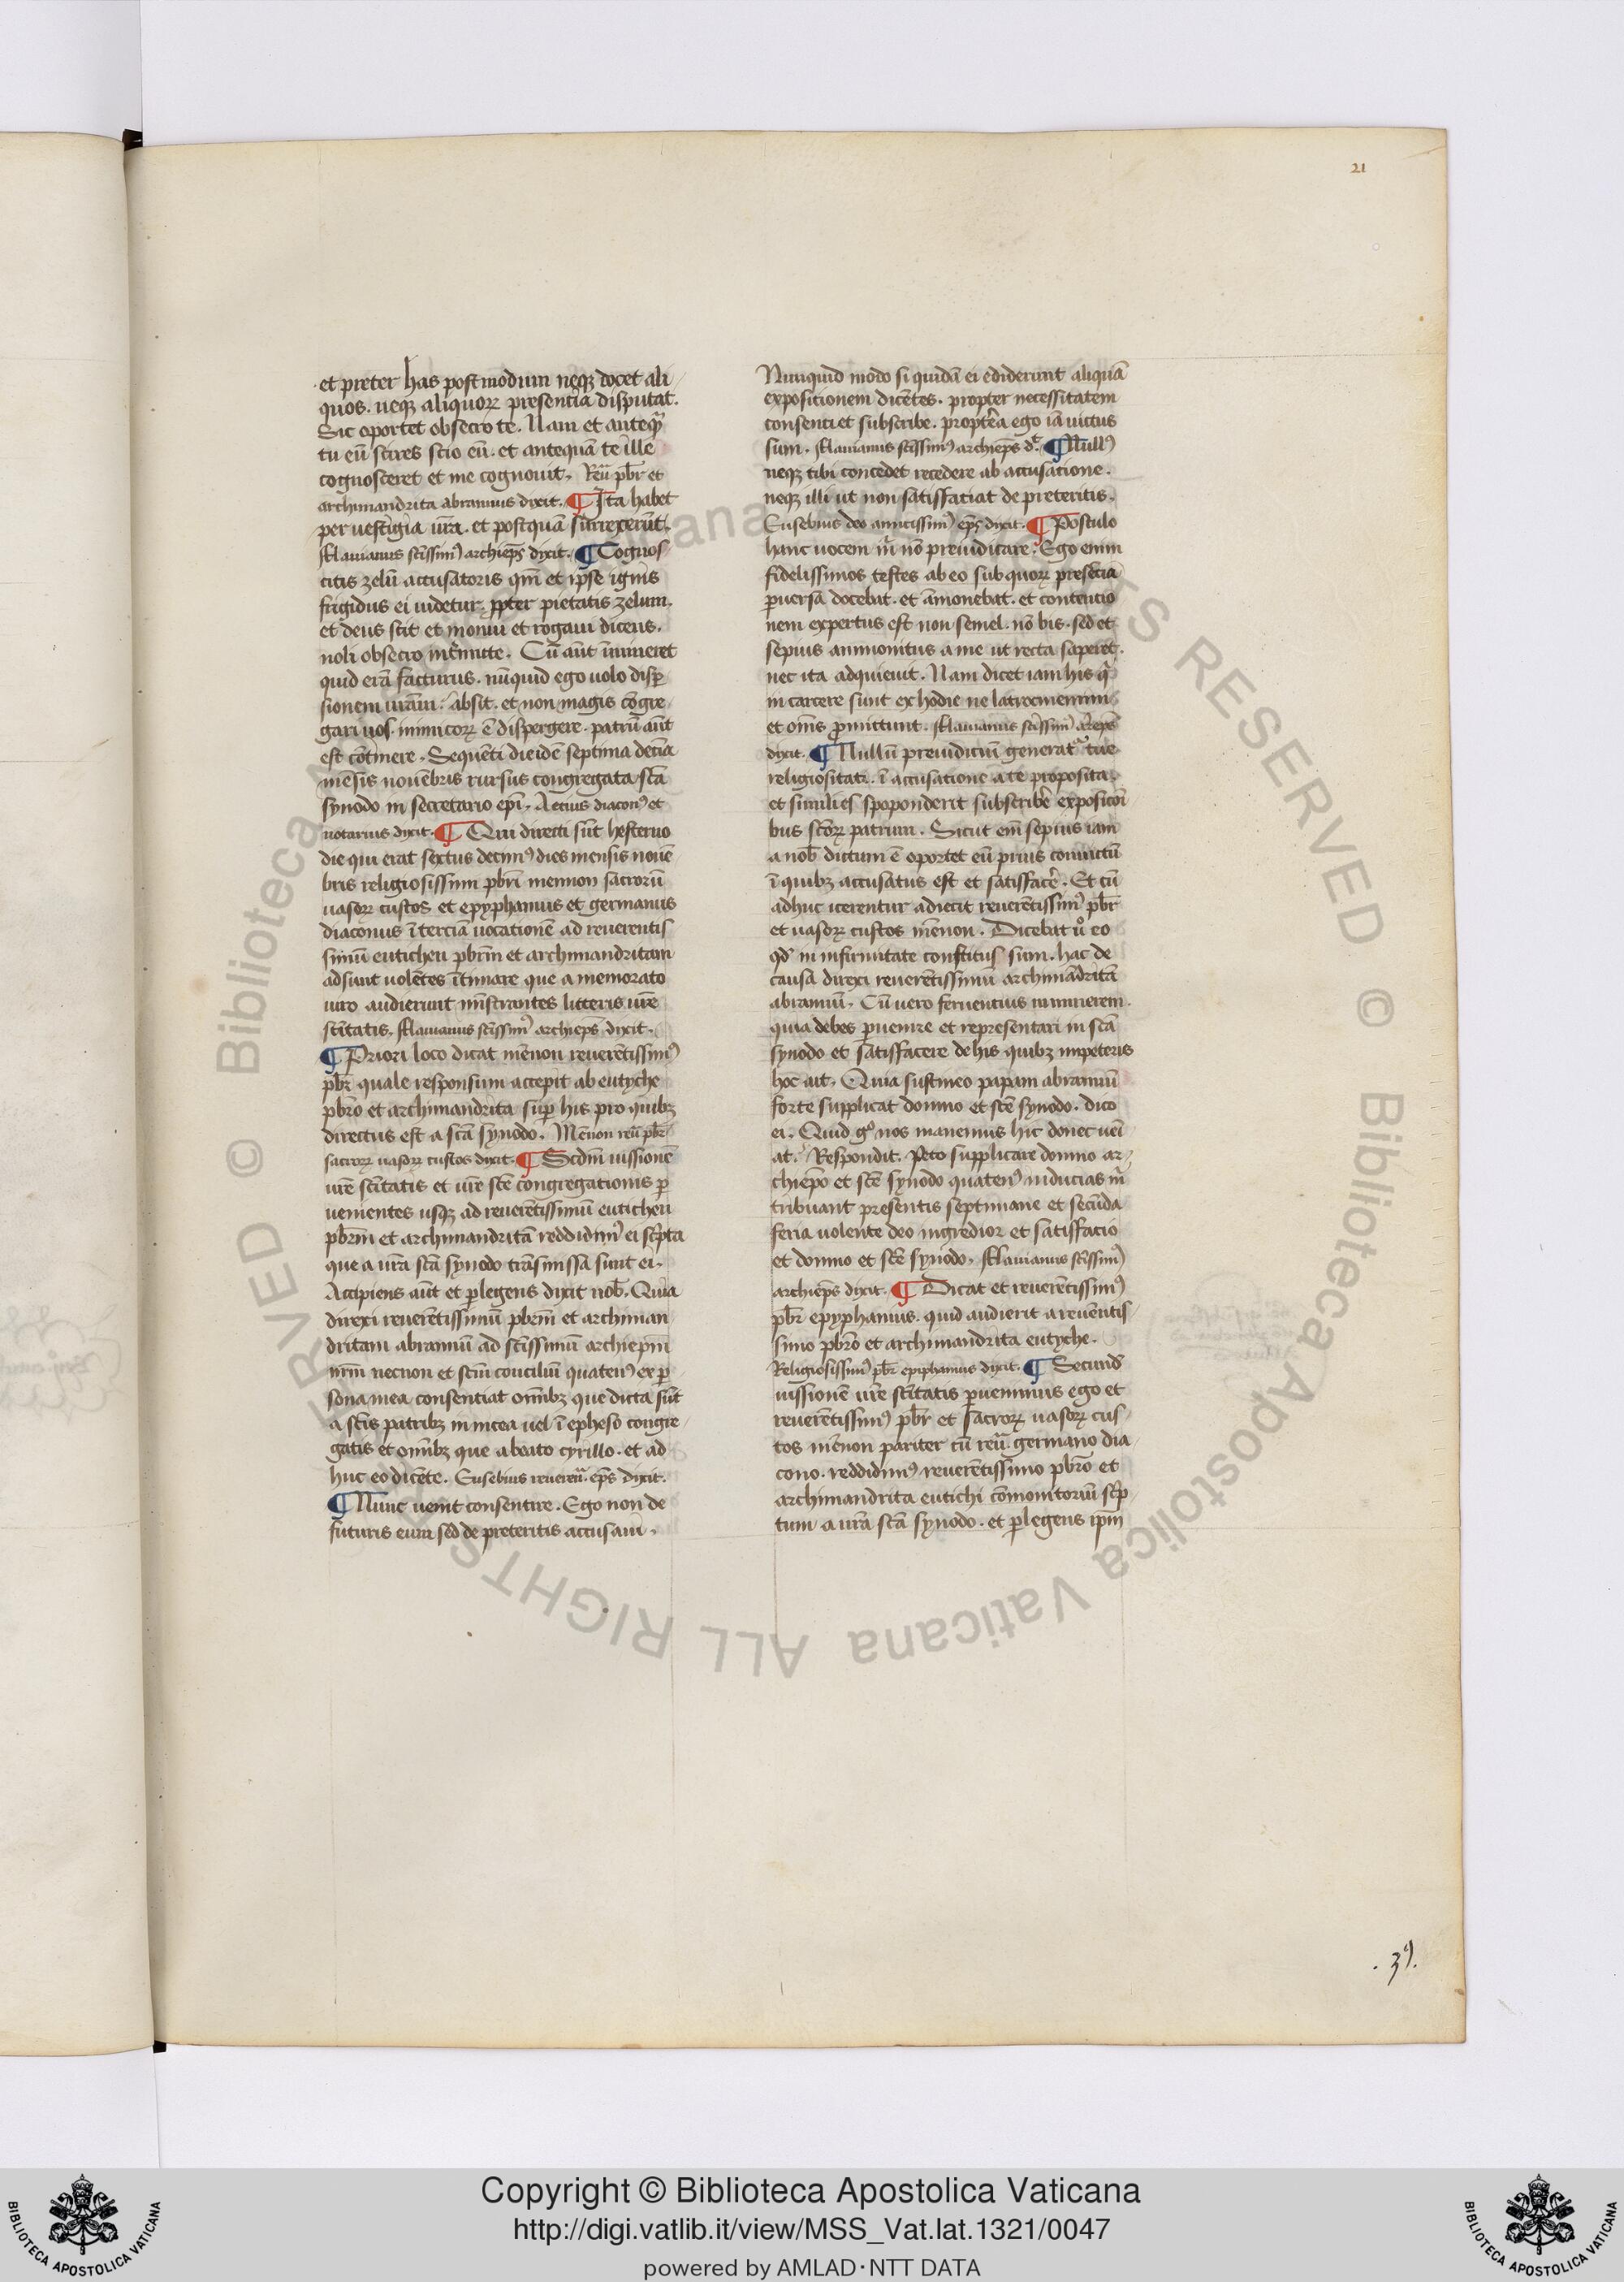 21
et preter has postmodum neqꝫ docet ali/
quos. neqꝫ aliquoꝝ presentia disputat.
Sic oportet obsecro te. Nam et anteqᷓ
tu eū scires scio eū. et antequā te ille
cognosceret et me cognouit. Reū pb̄r et
archimandrita abramius dixit. ¶ Ita habet
per uestigia ur̄a. et postquā surrexerūt.
Flauianus sc̄issimꝰ archiep̄s dixit. ¶ Cognos
citis zelū accusatoris qm̄ et ipse ignis
frigidus ei uidetur. ꝓpter pietatis zelum.
et deus scit et monui et rogaui dicens.
noli obsecro int̄mitte. Cū aūt īmineret
quid erā facturus. nūquid ego uolo disꝑ
sionem ur̄am. absit. et non magis cōgre
gari uos. inimicoꝝ ē dispergere. patrū aūt
est cōtinere. Sequēti die idē septima decīa
mēsis nouēbris rursus congregata sc̄a
synodo in secretario ep̄i. Aetius diaconꝰ et
notarius dixit. ¶ Qui directi sūt hesterno
die qui erat sextus decimꝰ dies mensis nouē
bris religiosissimi pb̄ri mennon sacrorū
uasoꝝ custos et epyphanius et germanus
diaconus ī tercia uocationē ad reuerentis
simū euticheu pb̄rm et archimandritam
adsunt uolētes ītimare que a memorato
uiro audierunt mīstrantes litteris ur̄e
sc̄itatis. Flauianus sc̄issimꝰ archiep̄s dixit.
¶ Priori loco dicat mēnon reuerētissimꝰ
pb̄r quale responsum accepit ab eutyche
pb̄ro et archimandrita suꝑ his pro quibꝫ
directus est a sc̄a synodo. Mēnon reū pb̄r
sacroꝝ uasoꝝ custos dixit. ¶ Scd̄m iussionē
ur̄e sc̄itatis et ur̄e sc̄e congregationis ꝑ
uenientes usqꝫ ad reuerētissimū euticheu
pb̄rm et archimandritā reddidimꝰ ei sc̄pta
que a ur̄a sc̄a synodo trāsmissa sunt ei.
Accipiens aūt et ꝑlegens dixit nob̄. Quia
direxi reuerētissimū pb̄rm et archiman
dritam abramiū ad sc̄issimū archiepm̄
nr̄m necnon et sc̄m conciliū quatenꝰ ex ꝑ
sona mea consentiat om̄ibꝫ que dicta sūt
a sc̄is patribꝫ in nicea uel ī epheso congre
gatis et om̄ibꝫ que a beato cyrillo. et ad
huc eo dicēte. Eusebius reuereᷓ. ep̄s dixit.
¶ Nunc uenit consentire. Ego non de
futuris eum sed de preteritis accusaui.
Nunquid modo si quidā ei ediderunt aliquā
expositionem dicētes. propter necessitatem
consenti et subscribe. propt̄ea ego iā uictus
sum. Flauianus sc̄issimꝰ archiep̄s dꝭ. ¶ Nullꝰ
neqꝫ tibi concedet recedere ab accusatione.
neqꝫ illi ut non satisfaciat de preteritis.
Eusebius deo amicissimꝰ ep̄s dixit. ¶ Postulo
hanc uocem m̄ nō preiudicare. Ego enim
fidelissimos testes ab eo sub quoꝝ presētia
ꝑuersa docebat. et āmonebat. et contentio
nem expertus est non semel. nō bis. sed et
sepius ammonitus a me ut recta saperet.
nec ita adquieuit. Nam dicet iam his qͥ
in carcere sunt ex hodie ne latrocinemini
et om̄s ꝓmittunt. Flauianus sc̄issimꝰ ar̄ep̄s
dixit. ¶ Nullū preiudiciū generatᷣ tue
religiositati. ī accusatione a te proposita.
et simili es spoponderit subscribē expositōi
bus sc̄oꝝ patrum. Sicut em̄ sepius iam
a nob̄ dictum ē oportet eū prius conuictū
ī quibꝫ accusatus est et satisfacē. Et cū
adhuc icerentur adiecit reuerētissimꝰ pb̄r
et uasoꝝ custos mēnon. Dicebat uͦ eo
qd̄ in infirmitate constitutꝰ sum. hac de
causa direxi reuerētissimū archimādritā
abramiū. Cū uero feruentius imminerem.
quia debes ꝑuenire et representari in sc̄a
synodo et satisfacere de his quibꝫ impeteris
hoc ait. Quia sustineo papam abramiū
forte supplicat domno et sc̄e synodo. dico
ei. Quid gͦ nos manemus hic donec ueī
at. Respondit. Peto supplicare domno ar/
chiep̄o et sc̄e synodo quatenꝰ inducias m̄
tribuant presentis septimane et secūda
feria uolente deo ingredior et satisfacio
et domno et sc̄e synodo. Flauianus sc̄issimꝰ
archiep̄s dixit. ¶ Dicat et reuerētissimꝰ
pb̄r epyphanius. quid audierit a reuēntis
simo pb̄ro et archimandrita eutyche.
Religiosissimꝰ pb̄r epiphanius dixit. ¶ Secund
iussionē ur̄e sc̄itatis ꝑuenimus ego et
reuerētissimꝰ pb̄r et sacroꝝ uasoꝝ cus
tos mēnon pariter cū reuᷓ. germano dia
cono. reddidimꝰ reuerētissimo pb̄ro et
archimandrita eutichi cōmonitoriū sc̄p
tum a ur̄a sc̄a synodo. et ꝑlegens ipm̄
Copyright © Biblioteca Apostolica Vaticana
http://digi.vatlib.it/view/MSS_Vat.lat.1321/0047
powered by AMLAD·NTT DATA
BIBLIOTECA APOSTOLICA VATICANA
BIBLIOTECA APOSTOLICA VATICANA